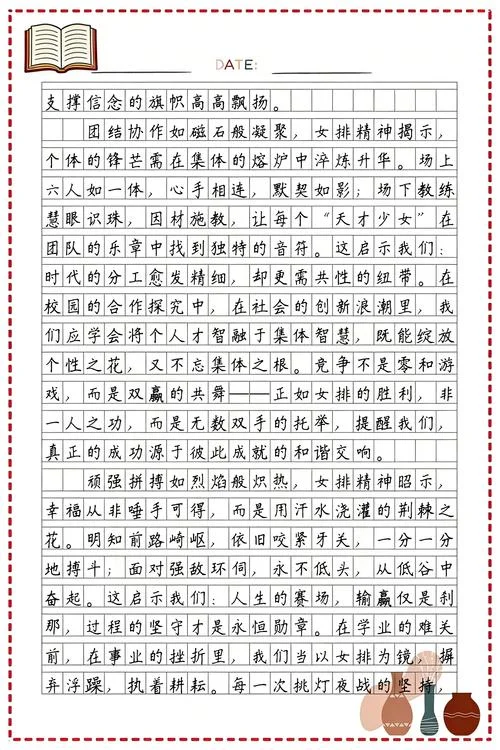 DATE:
支撑信念的旗帜高高飘扬。
团结协作如磁石般凝聚，女排精神揭示，
个体的锋芒需在集体的熔炉中淬炼升华。场上
六人如一体，心手相连，默契如影；场下教练
慧眼识珠，因材施教，让每个“天才少女”在
团队的乐章中找到独特的音符。这启示我们：
时代的分工愈发精细，却更需共性的纽带。在
校园的合作探究中，在社会的创新浪潮里，我
们应学会将个人才智融于集体智慧，既能绽放
个性之花，又不忘集体之根。竞争不是零和游
戏，而是双赢的共舞——正如女排的胜利，非
一人之功，而是无数双手的托举，提醒我们，
真正的成功源于彼此成就的和谐交响。
顽强拼搏如烈焰般炽热，女排精神昭示，
幸福从非唾手可得，而是用汗水浇灌的荆棘之
花。明知前路崎岖，依旧咬紧牙关，一分一分
地搏斗；面对强敌环伺，永不低头，从低谷中
奋起。这启示我们：人生的赛场，输赢仅是刹
那，过程的坚守才是永恒勋章。在学业的难关
前，在事业的挫折里，我们当以女排为镜，摒
弃浮躁，执着耕耘。每一次挑灯夜战的坚持，